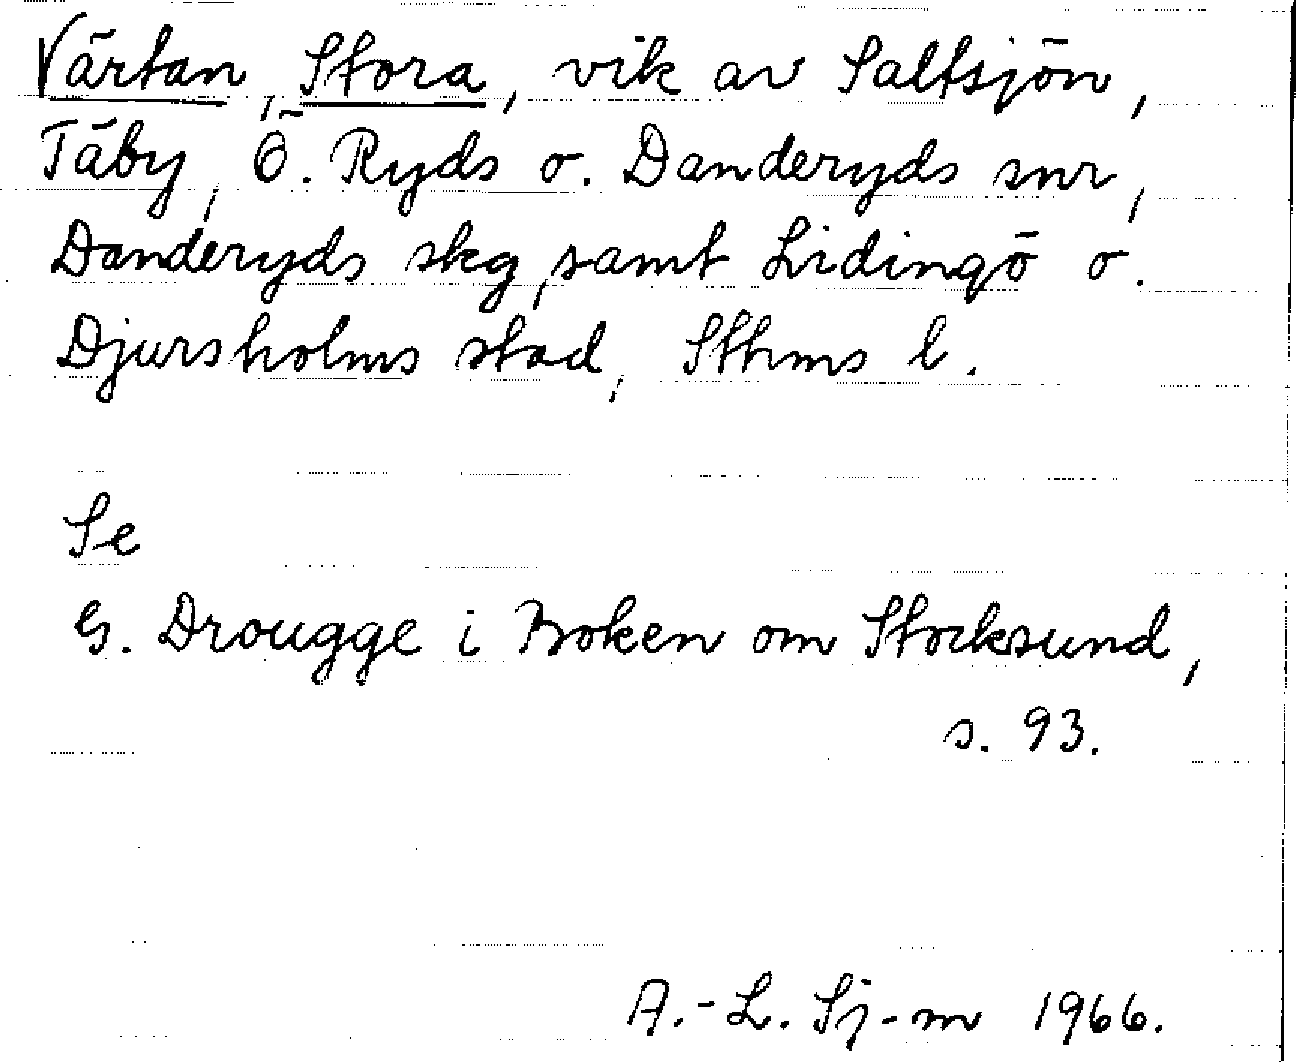 Värtan, Stora, vik av Saltsjön,
Täby, Ö. Ryds o. Danderyds snr,
Danderyds skg, samt Lidingö o.
Djursholms stad, Sthms l.
Se
G. Drougge i Boken om Stocksund,
s. 93.
A.-L. Sj-m 1966.